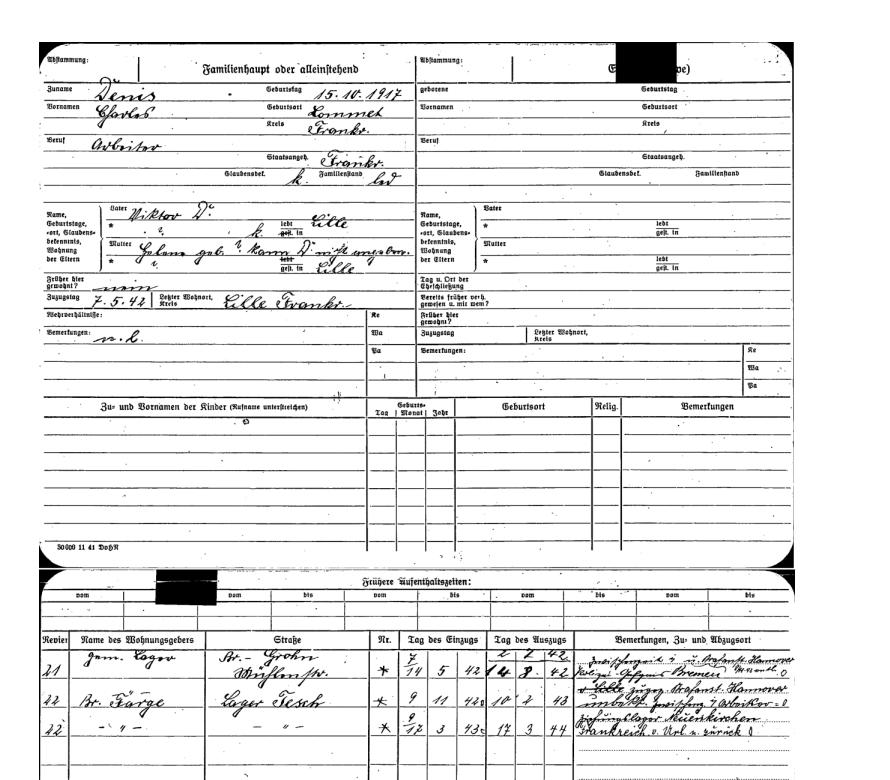 Abstammung:
Familienhaupt oder alleinstehend
Zuname Denis
Geburtstag 15.10.1917
Vornamen Charles
Geburtsort Lommet
Kreis Frankr.
Beruf Arbeiter
Staatsangeh. Frankr.
Glaubensbek. k. Familienstand led
Name, Geburtstage, -ort, Glaubens-bekenntnis, Wohnung der Eltern
Vater Viktor D.
* ? k. lebt gest. in Lille
Mutter Helene geb. ? kann D. nicht angeben.
* ? lebt gest. in Lille
Früher hier gewohnt? nein
Zuzugstag 7.5.42 Letzter Wohnort, Kreis Lille Frankr.
Wehrverhältnisse:
Ke
Bemerkungen: n.b.
Wa
Pa
Abstammung:
geborene
Geburtstag
Vornamen
Geburtsort
Kreis
Beruf
Staatsangeh.
Glaubensbek. Familienstand
Name, Geburtstage, -ort, Glaubens-bekenntnis, Wohnung der Eltern
Vater
* lebt gest. in
Mutter
* lebt gest. in
Tag u. Ort der Eheschließung
Bereits früher verh. gewesen u. mit wem?
Früher hier gewohnt?
Zuzugstag Letzter Wohnort, Kreis
Bemerkungen:
Ke
Wa
Pa
Zu- und Vornamen der Kinder (Rufname unterstreichen) Geburts- Tag Monat Jahr Geburtsort Relig. Bemerkungen
50000 11 41 DoHN
Frühere Aufenthaltszeiten:
vom vom bis vom bis vom bis vom bis
Revier Name des Wohnungsgebers Straße Nr. Tag des Einzugs Tag des Auszugs Bemerkungen, Zu- und Abzugsort
2 7 42
21 gem. Lager Br.- Grohn Mühlenstr. * 7/14 5 42 14 8 42 Hannover Bremen
v. Lille Strafanst. Hannover
22 Br. Farge Lager Tesch * 9 11 42 10 2 43 unbek.
22 - " - - " - * 9/17 3 43 17 3 44 Frankreich v. Url. u. zurück